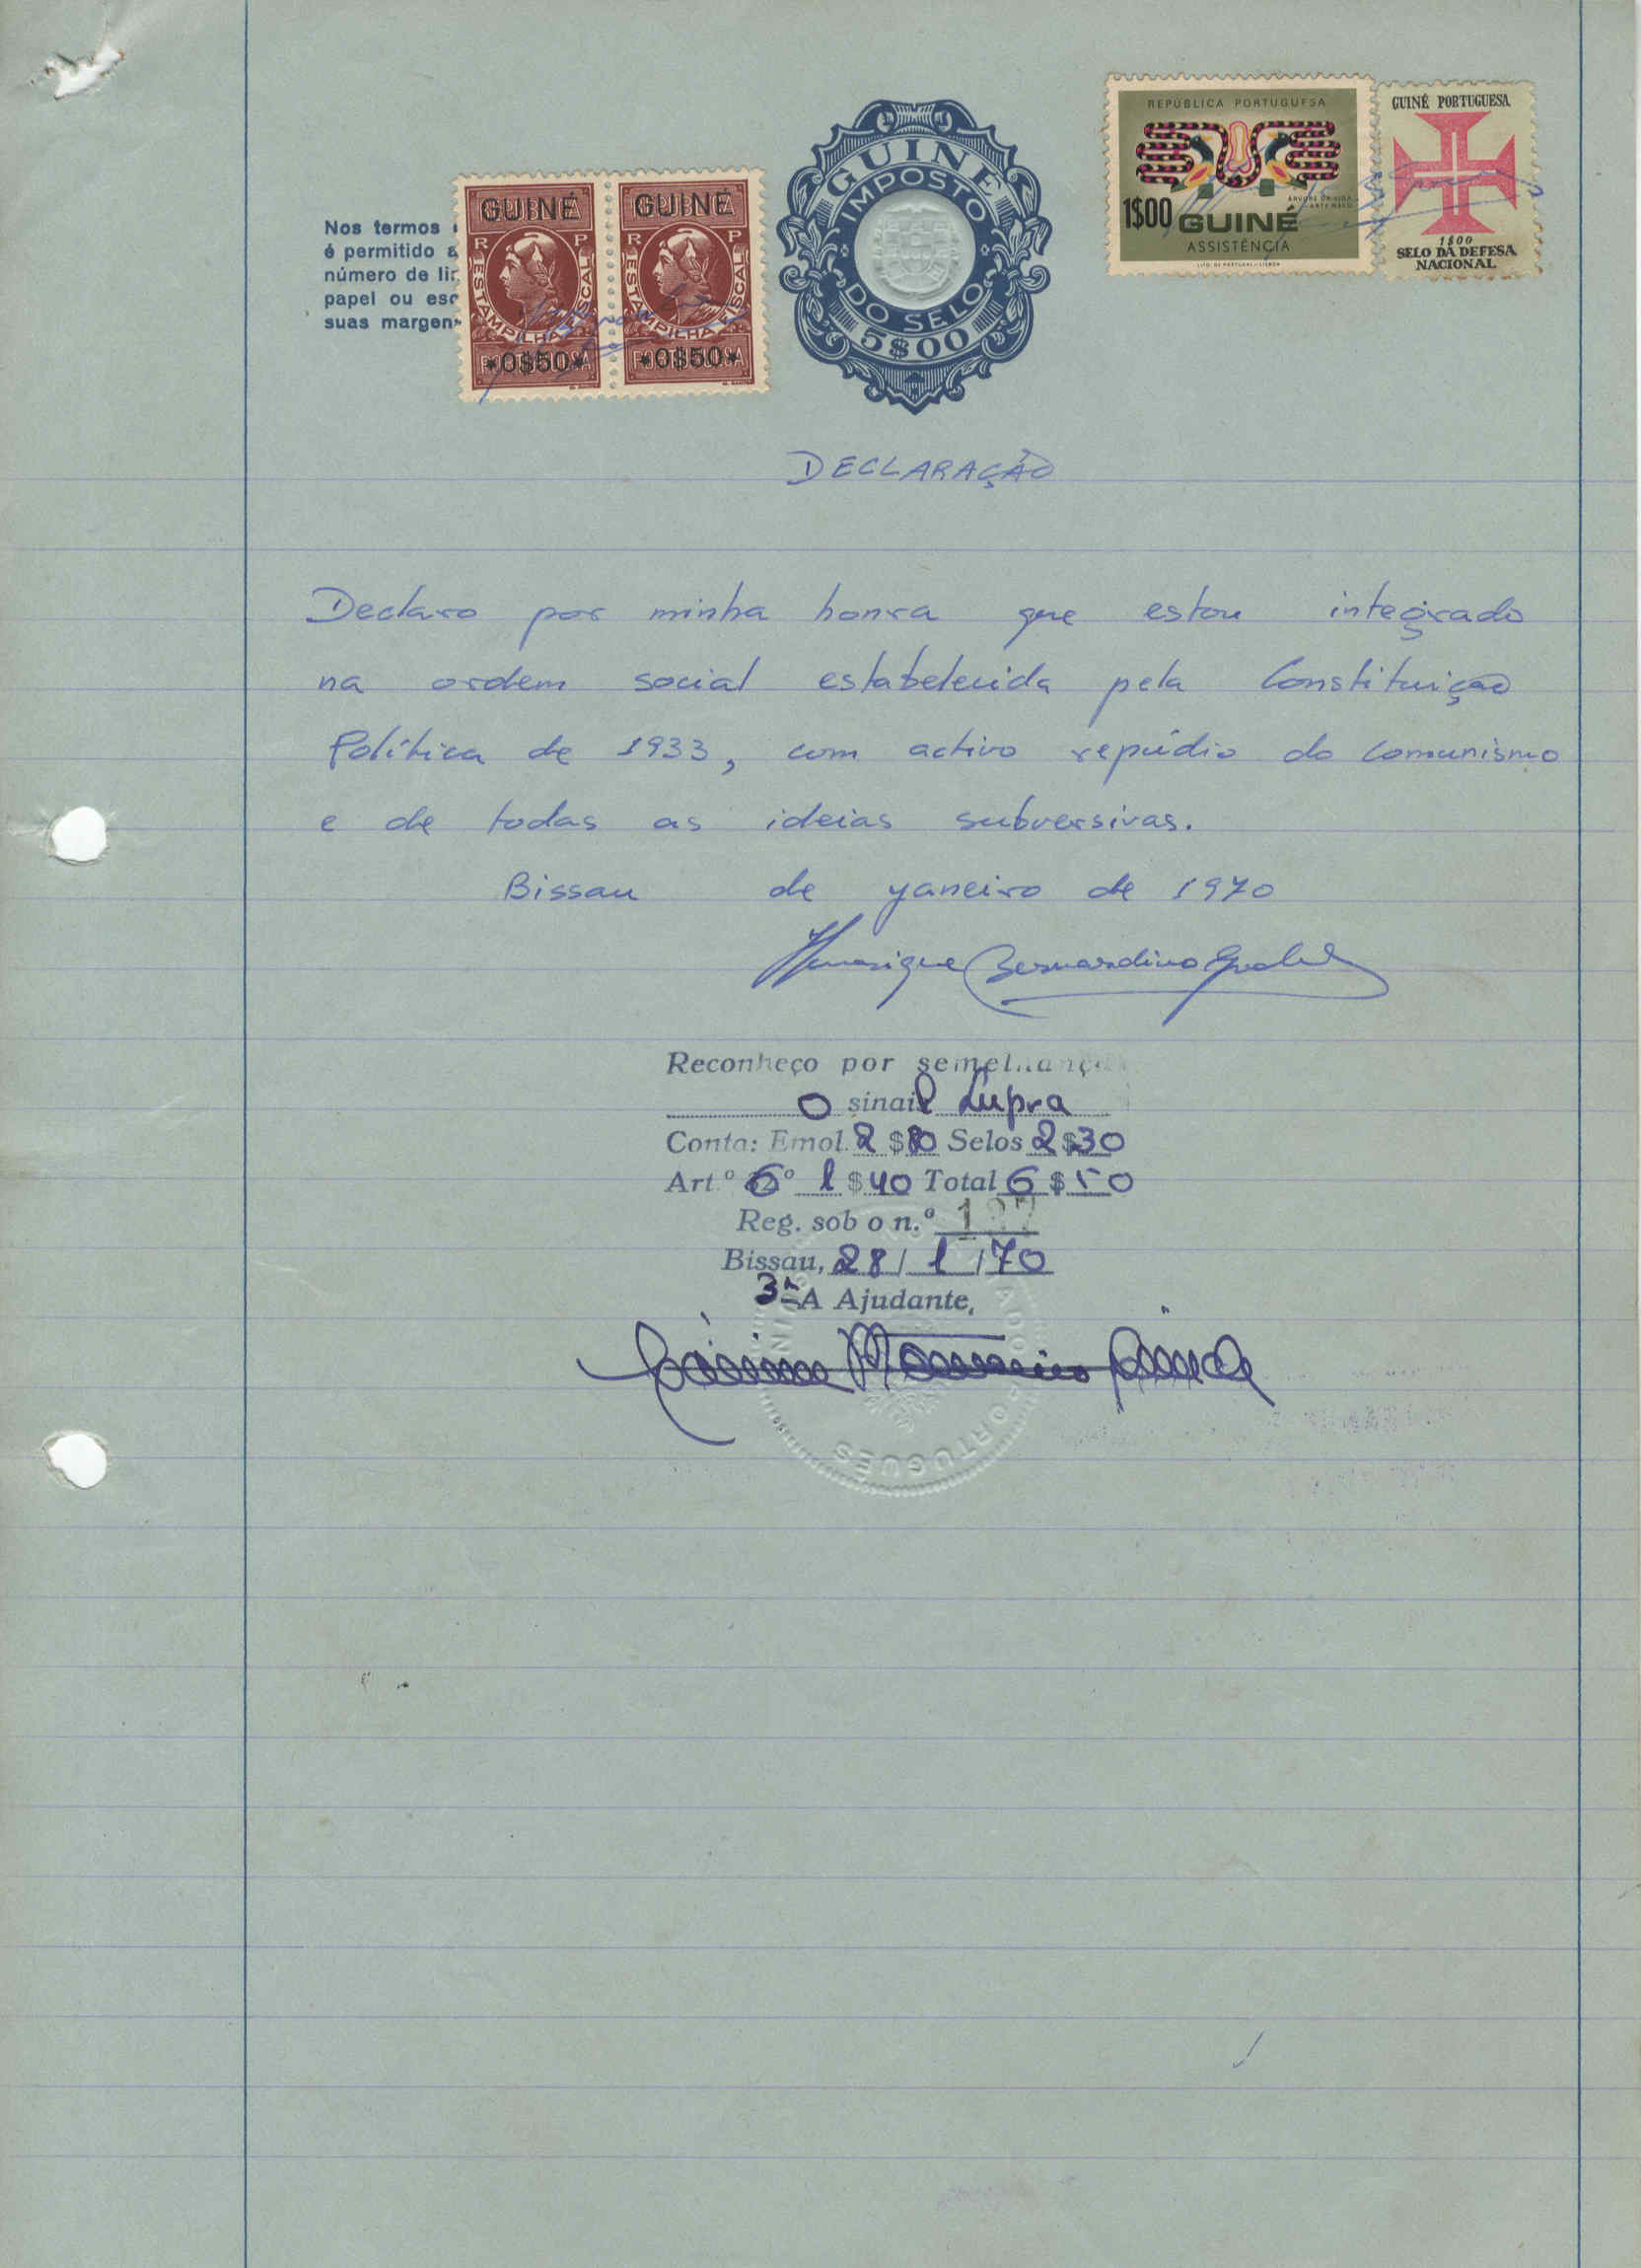 REPÚBLICA PORTUGUESA
1$00 GUINÉ
ASSISTÊNCIA
GUINÉ PORTUGUESA
1$00
SELO DA DEFESA
NACIONAL
GUINÉ
IMPOSTO
DO SELO
5$00
GUINÉ GUINÉ
R P R P
ESTAMPILHA FISCAL ESTAMPILHA FISCAL
*0$50* *0$50*
Nos termos
é permitido a
número de
papel ou
suas margen
DECLARAÇÃO
Declaro por minha honra que estou integrado
na ordem social estabelecida pela Constituição
Política de 1933, com activo repúdio do Comunismo
e de todas as ideias subversivas.
Bissau de yaneiro de 1970
Henrique Bernardino
Reconheço por semelhança
O sinal Supra
Conta: Emol. 2 $80 Selos 2 $30
Art.º 6º 1 $40 Total 6 $50
Reg. sob o n.º 127
Bissau, 28 / 1 / 70
3ª A Ajudante,